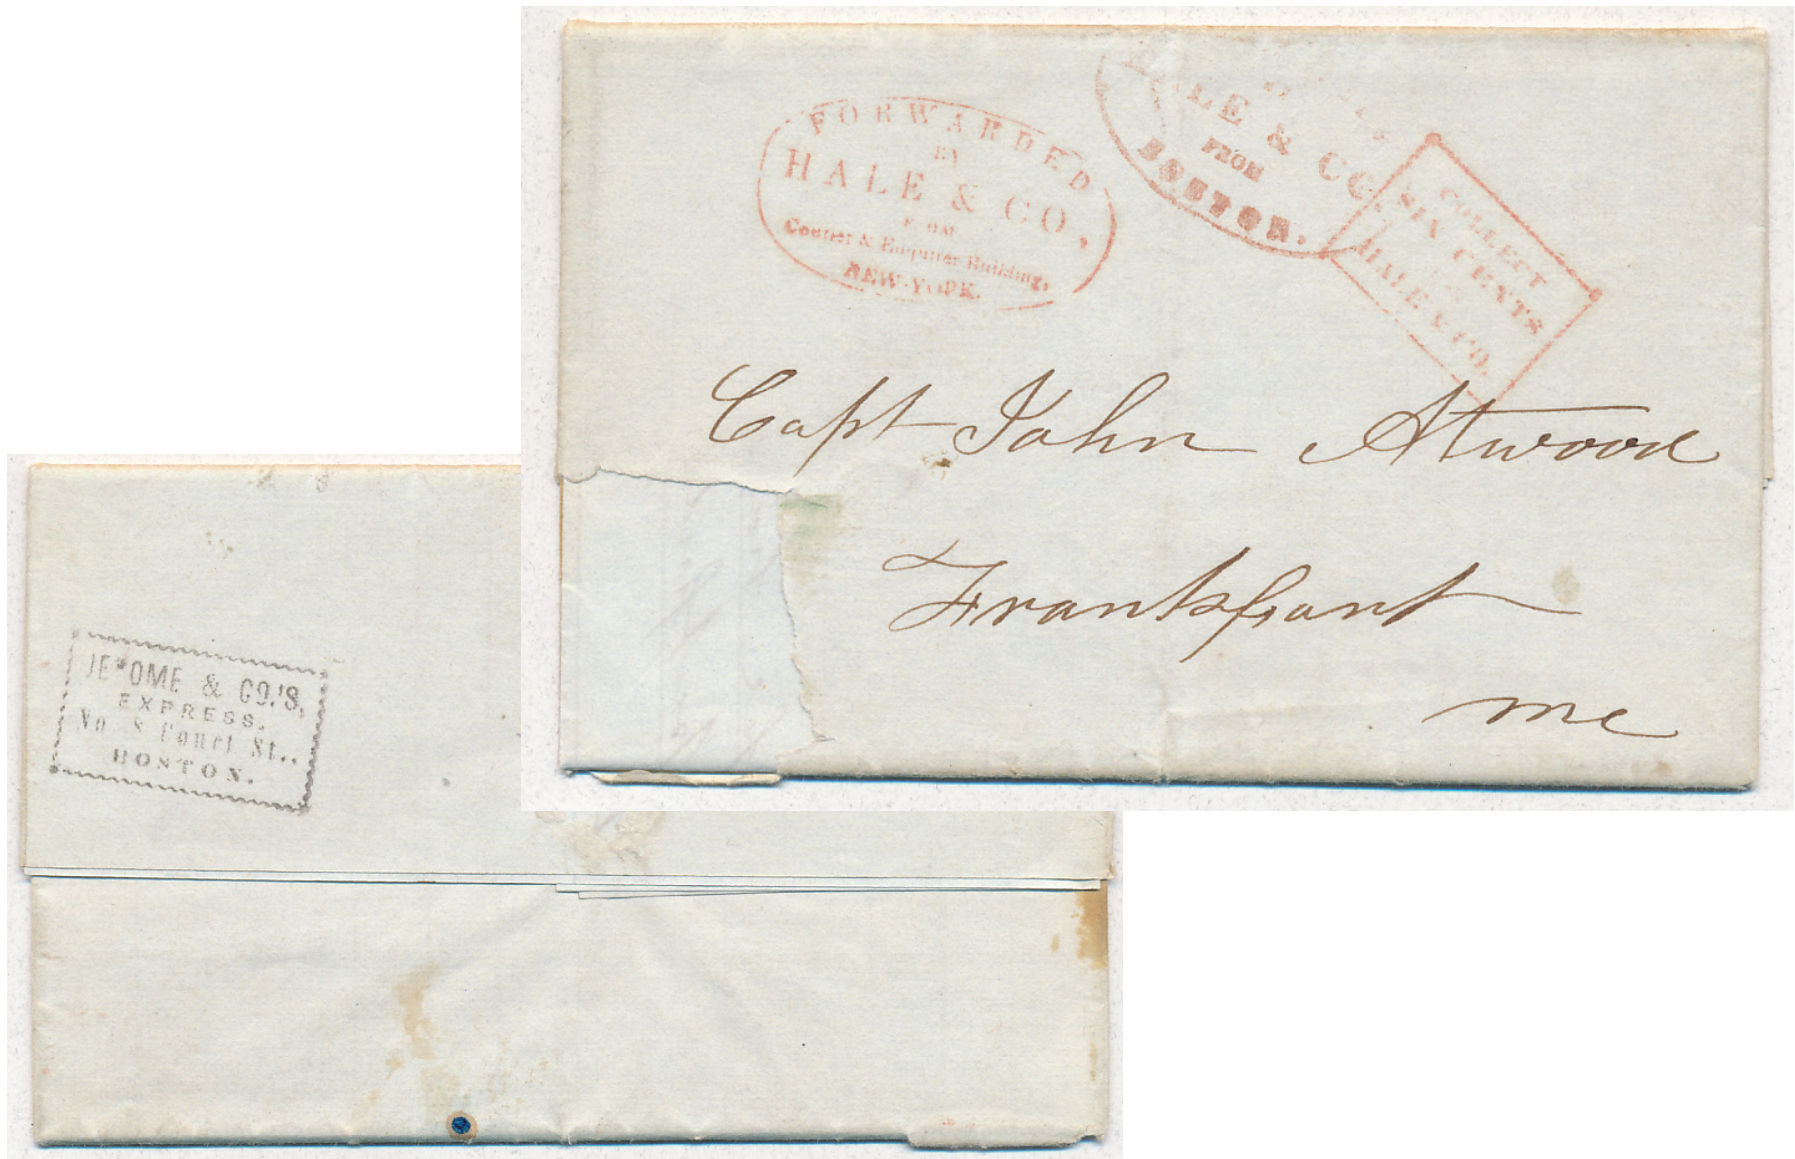 FORWARDED
BY
HALE & CO,
FROM
Courier & Enquirer Building,
NEW-YORK.
HALE & CO.
FROM
BOSTON.
COLLECT
SIX CENTS
HALE & CO.
Capt John Atwood
Frankfort
me
JEROME & CO.'S,
EXPRESS,
No. 8 Court St.,
BOSTON.